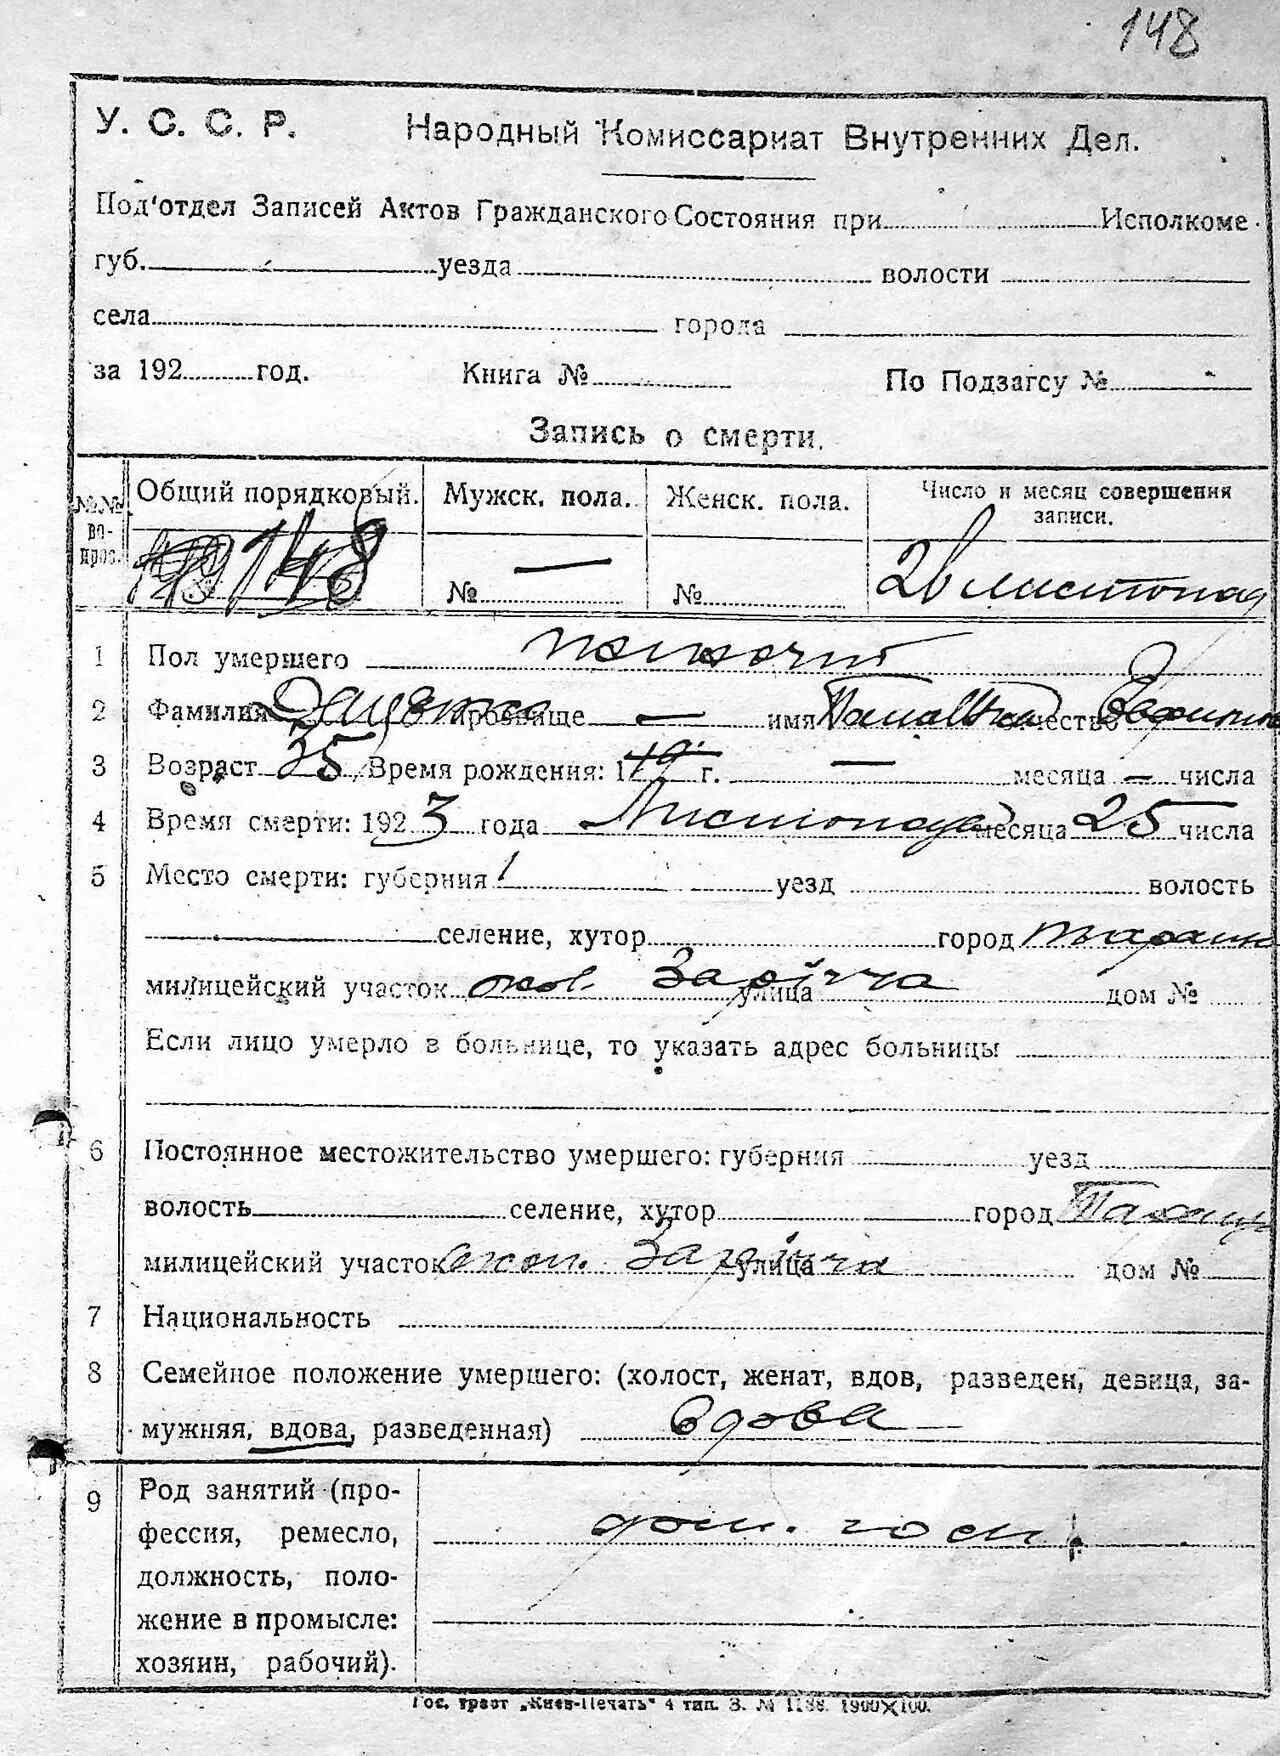 148
У. С. С. Р. Народный Комиссариат Внутренних Дел.
Под'отдел Записей Актов Гражданского Состояния при Исполкоме
губ. уезда волости
села города
за 192 год. Книга № По Подзагсу №
Запись о смерти.
№№ во-прос. Общий порядковый. Мужск. пола. Женск. пола. Число и месяц совершения записи.
148 № — № 26 листопад
1 Пол умершего жіночий
2 Фамилия прозвище — имя отчество
3 Возраст 35 Время рождения: 19 г. — месяца — числа
4 Время смерти: 1923 года Листопада месяца 25 числа
5 Место смерти: губерния уезд волость
селение, хутор город Таращ
милицейский участок окол. Зарічча улица дом №
Если лицо умерло в больнице, то указать адрес больницы
6 Постоянное местожительство умершего: губерния уезд
волость селение, хутор город Таращ
милицейский участок окол. Зарічча улица дом №
7 Национальность
8 Семейное положение умершего: (холост, женат, вдов, разведен, девица, за-
мужняя, вдова, разведенная) вдова
9 Род занятий (про-
фессия, ремесло, дом. госп.
должность, поло-
жение в промысле:
хозяин, рабочий).
Гос. трест „Киев-Печать" 4 тип. З. № 1188. 1900×100.